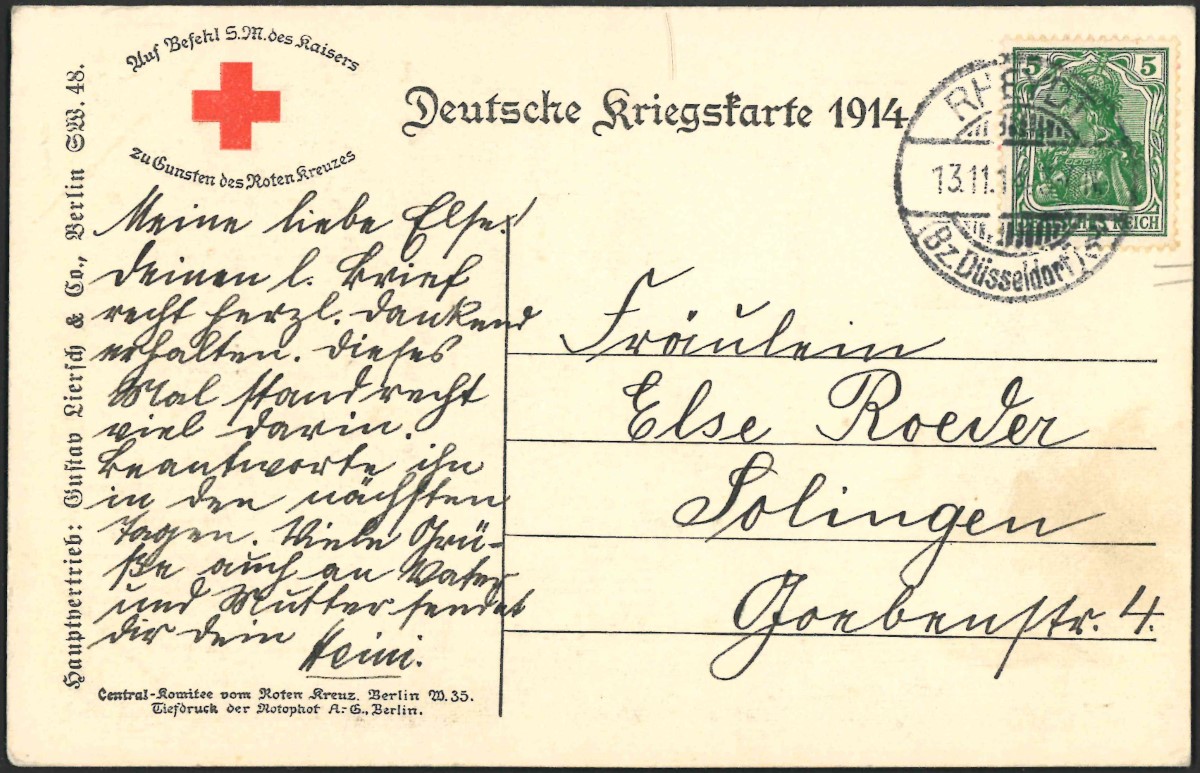 Auf Befehl S.M. des Kaisers
zu Gunsten des Roten Kreuzes
Deutsche Kriegskarte 1914
5 5
RHEYDT
13.11.1
(Bz Düsseldorf) 5
REICH
Hauptvertrieb: Gustav Liersch & Co., Berlin SW. 48.
Meine liebe Else!
Deinen l. Brief
recht herzl. dankend
erhalten. Dieses
Mal stand recht
viel darin.
Beantworte ihn
in den nächsten
Tagen. Viele Grü-
ße auch an Vater
und Mutter sendet
dir dein
Heini.
Fräulein
Else Roeder
Solingen
Goebenstr. 4.
Central-Komitee vom Roten Kreuz. Berlin W. 35.
Tiefdruck der Rotophot A.-G., Berlin.